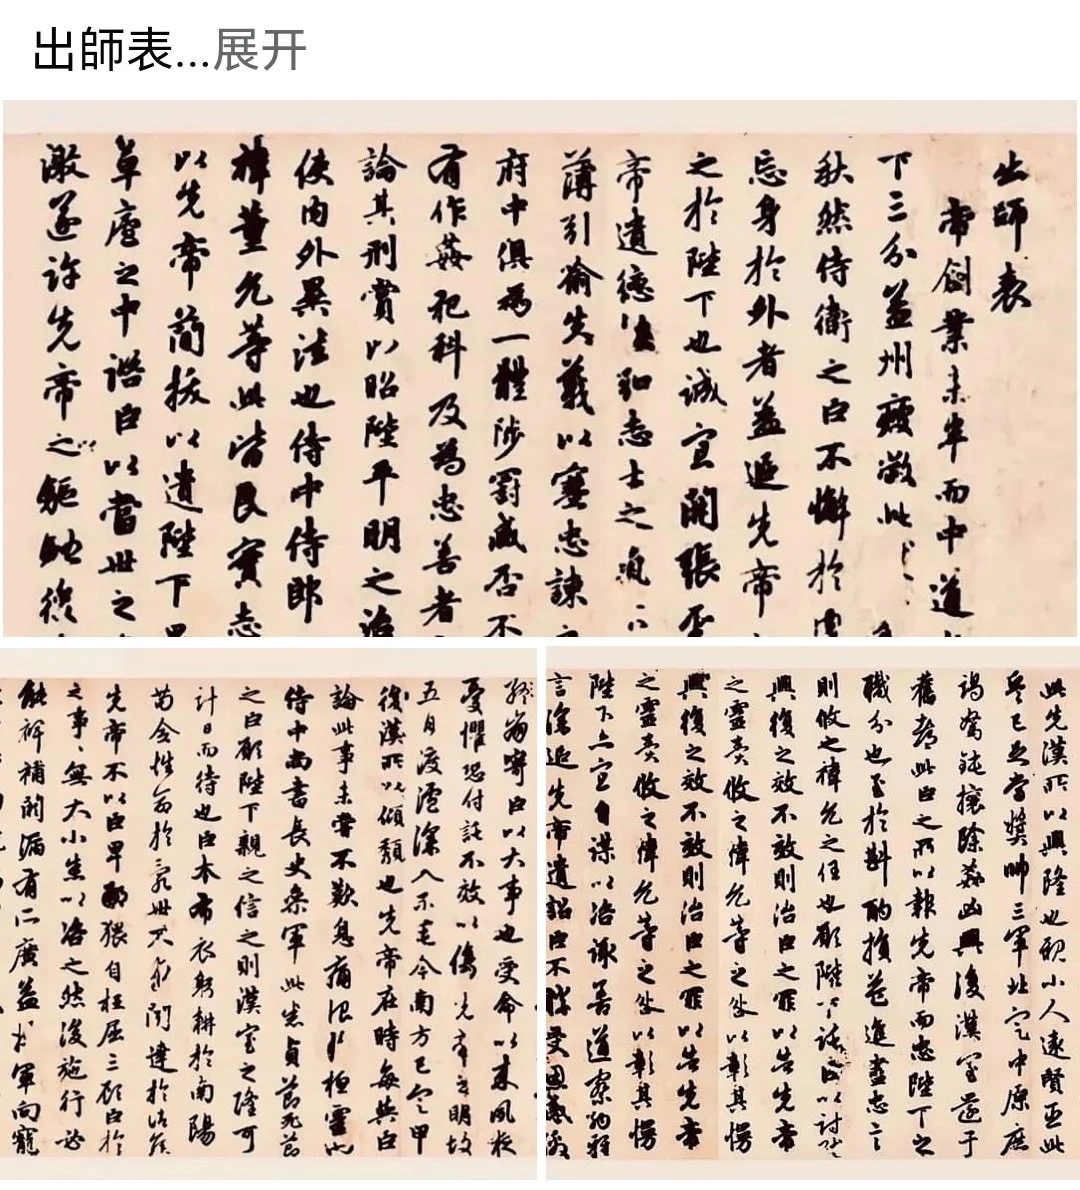 出師表...展开
出師表
帝創業未半而中道
下三分益州疲敝此
秋然侍衛之臣不懈於
忘身於外者蓋追先帝
之於陛下也誠宜開張
帝遺德 志士之
薄引喻失義以塞忠諫
府中俱為一體陟罰臧否不
有作姦犯科及為忠善者
論其刑賞以昭陛平明之治
使內外異法也侍中侍郎
禕董允等此皆良實志
以先帝簡拔以遺陛下
草廬之中諮臣以當世之
激遂許先帝之驅馳後
崩寄臣以大事也受命以来夙夜
憂懼恐付託不效以傷先帝之明故
五月渡瀘深入不毛今南方已定甲
復漢所以傾頹也先帝在時每與臣
論此事未嘗不歎息痛恨於桓靈也
侍中尚書長史參軍此悉貞亮死節
之臣願陛下親之信之則漢室之隆可
計日而待也臣本布衣躬耕於南陽
苟全性命於亂世不求聞達於諸侯
先帝不以臣卑鄙猥自枉屈三顧臣於
之事、無大小悉以咨之然後施行必
能裨補闕漏有所廣益 軍向寵
此先漢所以興隆也親小人遠賢臣此
兵已足當獎帥三軍北定中原庶
竭駑鈍攘除姦凶興復漢室還于
舊都此臣之所以報先帝而忠陛下之
職分也至於斟酌損益進盡忠言
則攸之禕允之任也願陛下託臣以討賊
興復之效不效則治臣之罪以告先帝
之靈責攸之禕允等之咎以彰其慢
興復之效不效則治臣之罪以告先帝
之靈責攸之禕允等之咎以彰其慢
陛下亦宜自謀以咨諏善道察納雅
言深追先帝遺詔臣不勝受恩感激